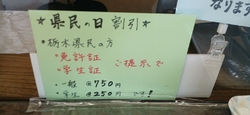 なります
★県民の日割引★
・栃木県民の方
・免許証
・学生証
ご提示で
・一般 @750円
・学生 @250円 です!